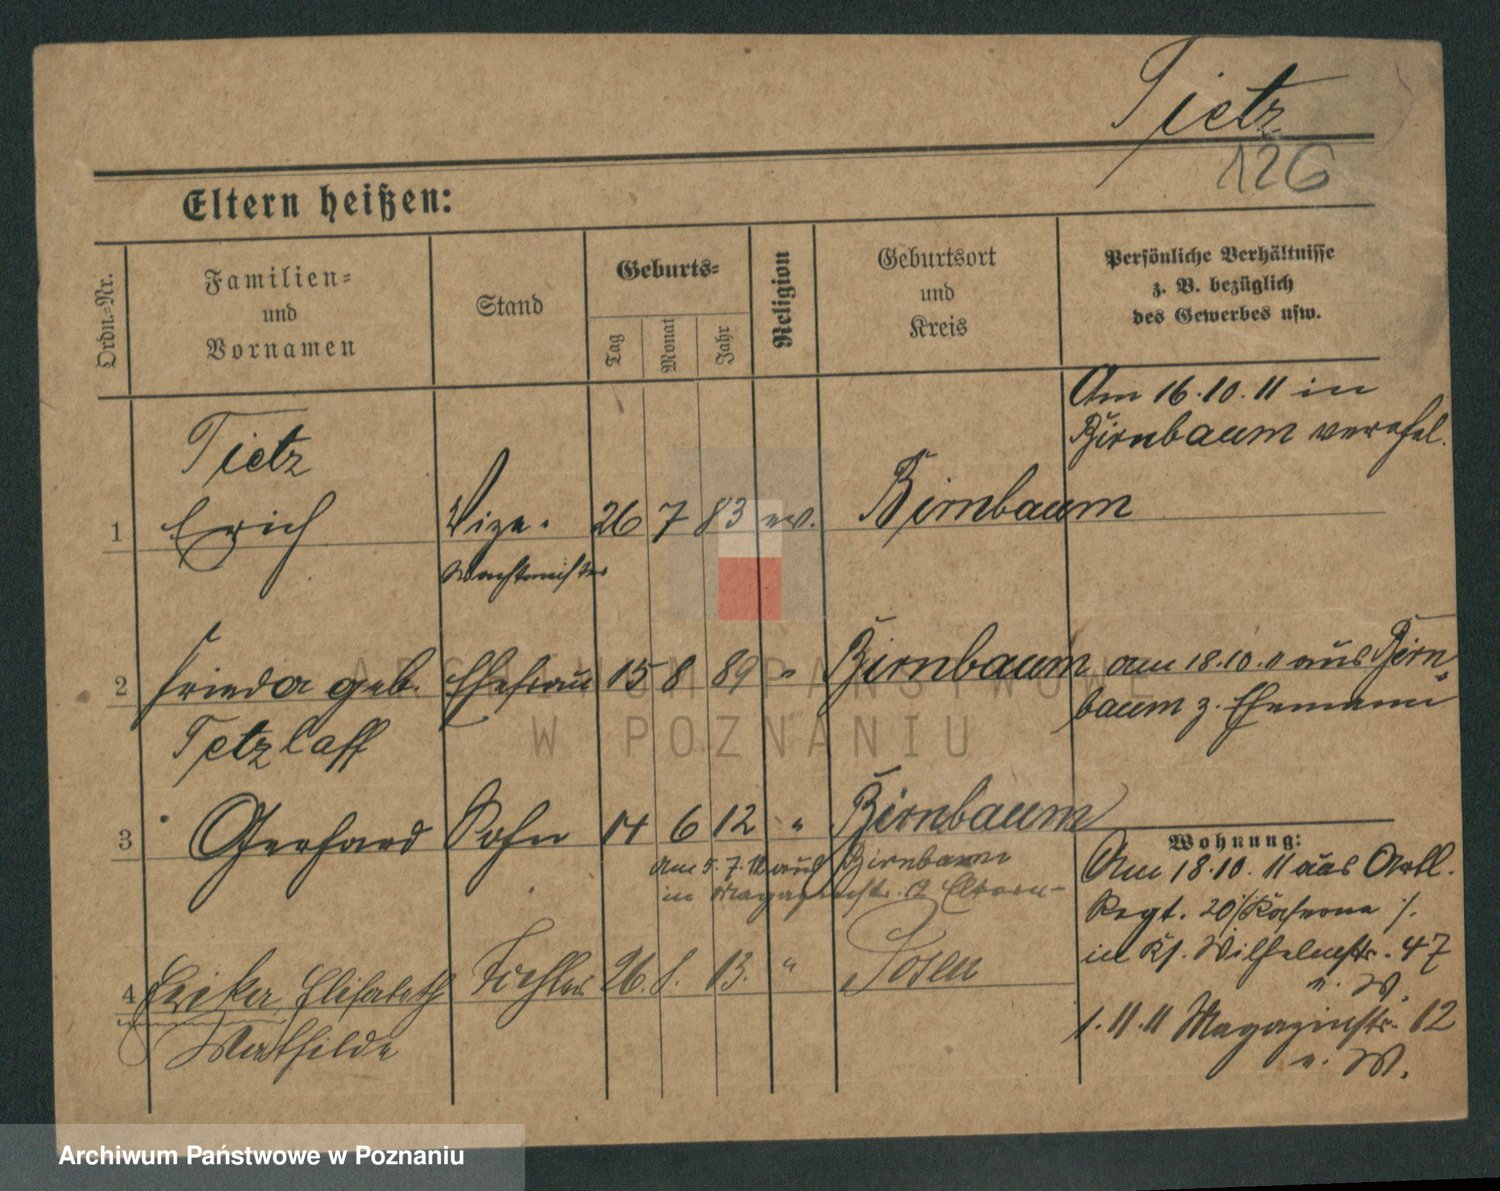 Tietz
126
Eltern heißen:
Ordn.-Nr.
Familien-
und
Vornamen
Stand
Geburts-
Tag
Monat
Jahr
Religion
Geburtsort
und
Kreis
Persönliche Verhältnisse
z. B. bezüglich
des Gewerbes usw.
Am 16.10.11 in
Birnbaum verehel.
Tietz
1 Erich Vize- 26 7 83 ev. Birnbaum
Wachtmeister
2 Frieda geb. Ehefrau 15 8 89 " Birnbaum am 18.10.11 aus Birn
Tetzlaff
baum z. Ehemann
3 Gerhard Sohn 14 6 12 " Birnbaum
Am 5.7.12 aus Birnbaum
in Magazinstr. 12 Eltern
Wohnung:
Am 18.10.11 aus Artl.
Regt. 20 /Kaserne/.
in Kl. Wilhelmstr. 47
v. W.
1.11.11 Magazinstr. 12
v. W.
4 Erika, Elisabeth Tochter 26. 8. 13. " Posen
Mathilde
ARCHIWUM PAŃSTWOWE
W POZNANIU
Archiwum Państwowe w Poznaniu